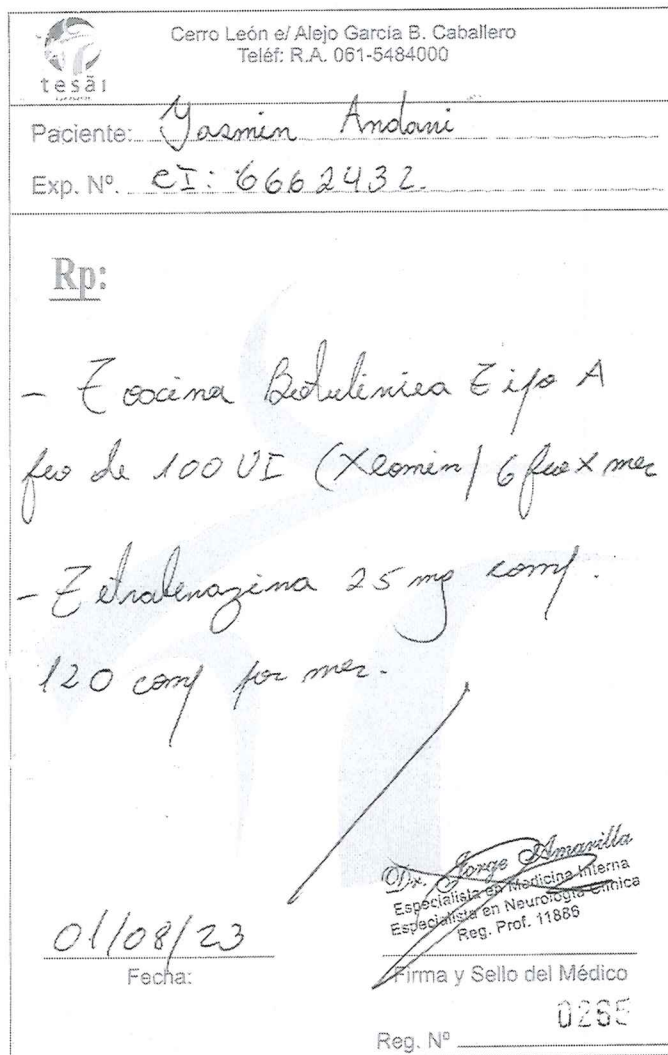 tesãi
Cerro León e/ Alejo García B. Caballero
Teléf: R.A. 061-5484000
Paciente: Yasmin Andani
Exp. Nº. CI: 6662432.
Rp:
- Toxina Botulinica Tipo A
fco de 100 UI (Xeomin) 6 fco x mes
- Tetrabenazina 25 mg comp.
120 comp por mes.
Dr. Jorge Amarilla
Especialista en Medicina Interna
Especialista en Neurología Clínica
Reg. Prof. 11886
01/08/23
Fecha:
Firma y Sello del Médico
Reg. Nº 0265